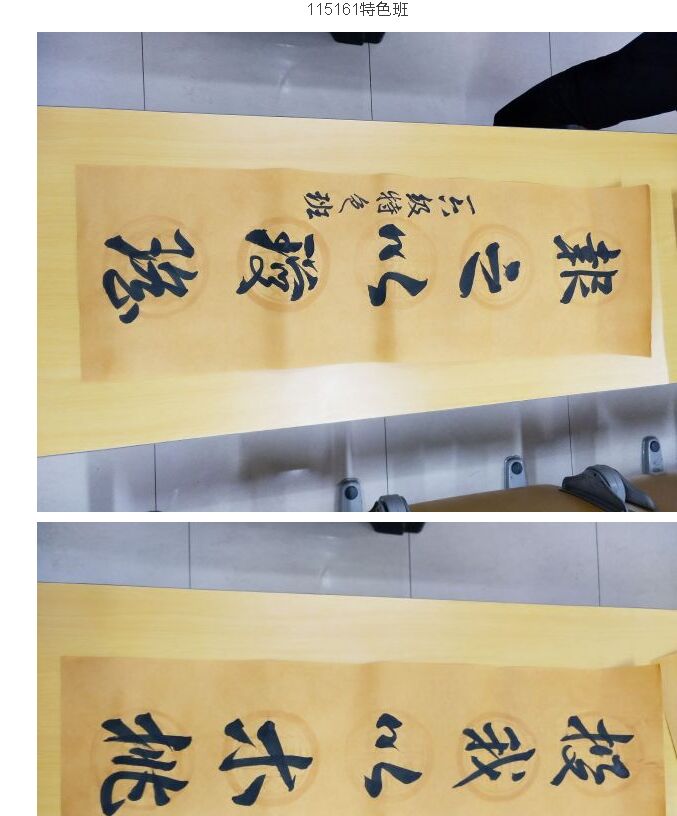 115161特色班
報之以瓊瑶
一六级特色班
投我以木桃